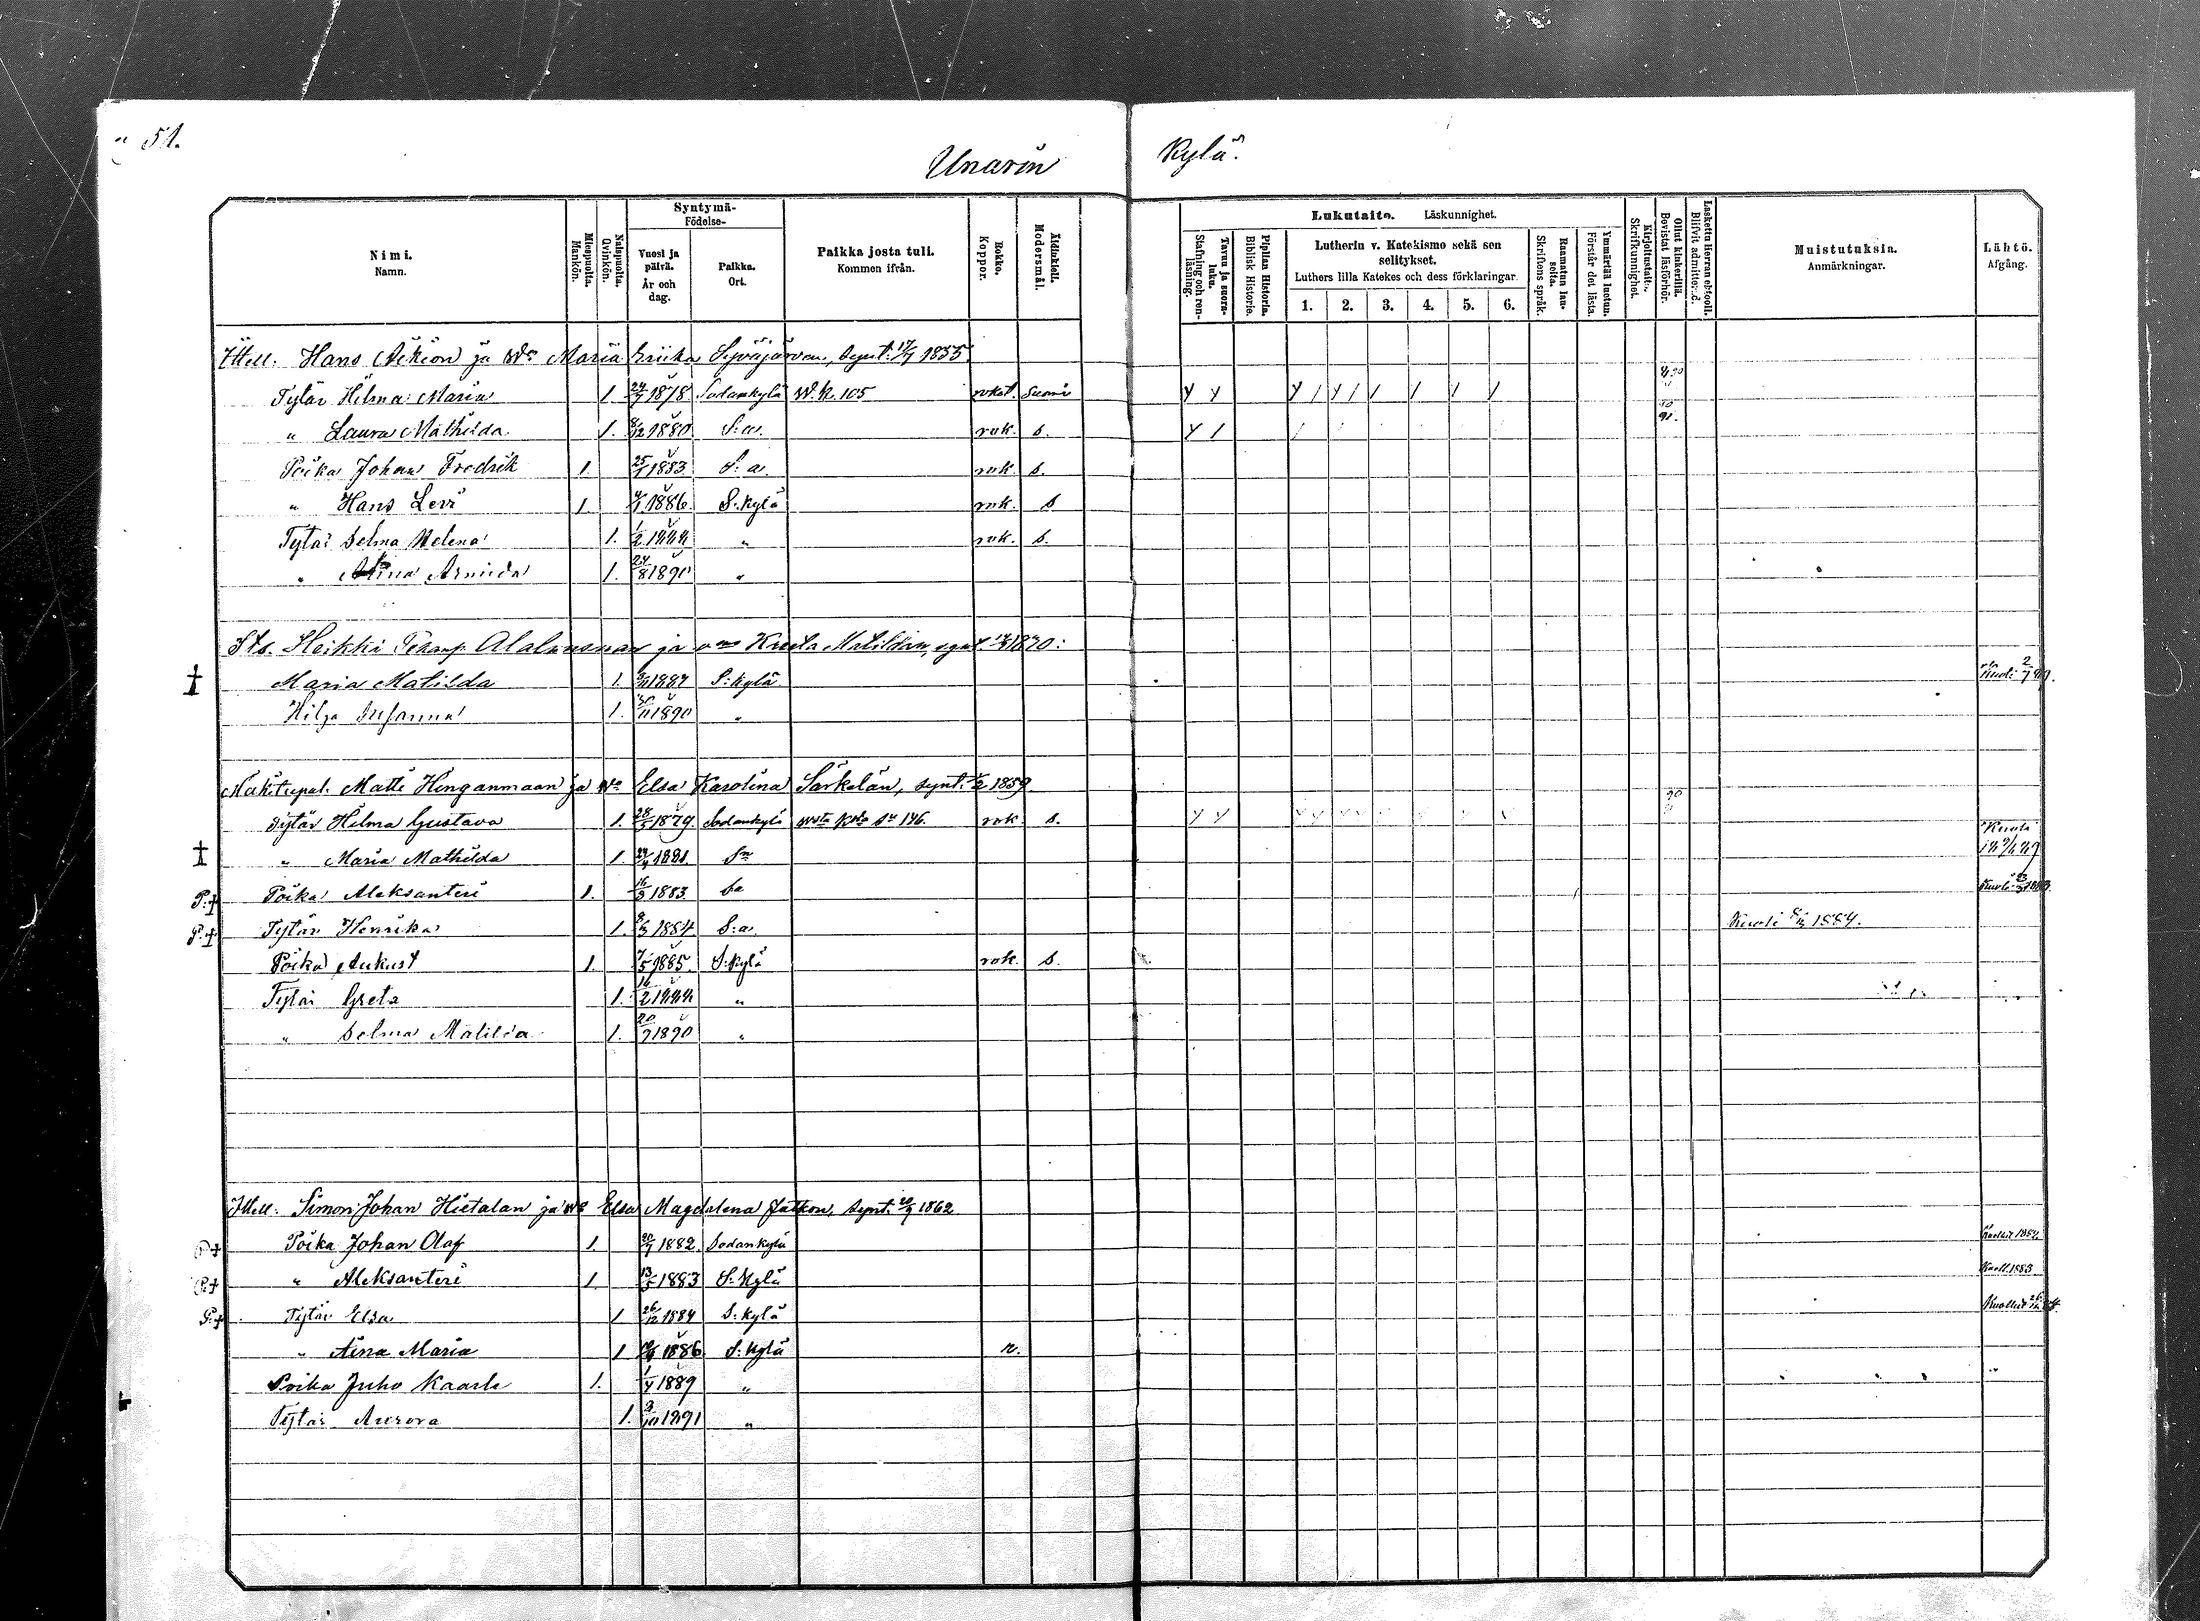 51.
Unarin Kylä.
Nimi. Namn.
Miespuolta. Mankön.
Naispuolta. Qvinkön.
Syntymä- Födelse-
Vuosi ja päivä. År och dag.
Paikka. Ort.
Paikka josta tuli. Kommen ifrån.
Rokko. Koppor.
Äidinkieli. Modersmål.
Lukutaito. Läskunnighet.
Tavuu ja suoraluku. Stafning och renläsning.
Piplian Historia. Biblisk Historie.
Lutherin v. Katekismo sekä sen selitykset.
Luthers lilla Katekes och dess förklaringar.
1. 2. 3. 4. 5. 6.
Raamatun lauseita. Skriftens språk.
Ymmärtää luetun. Förstår det lästa.
Kirjoitustaito. Skrifkunnighet.
Ollut kinkerillä. Bevistat läsförhör.
Laskettu Herran ehtoolle. Blifvit admitterad.
Muistutuksia. Anmärkningar.
Lähtö. Afgång.
Hans Aikion ja Maria Eriika Syväjärven, synt. 17/7 1855.
Tytär Hilma Maria 1. 24/7 1878 Sodankylä W. k. 105 rokot. Suomi
" Laura Mathilda 1. 8/12 1880 S:a. rok. s. 91.
Poika Johan Fredrik 1. 25/1 1883 S:a. rok. s.
" Hans Levi 1 1886. S:kylä rok. s
Tytär Selma Helena 1. 1/2 1888 " rok. s.
" Armida 1. 24/8 1891 "
Heikki ja Matildan, synt. 1870:
Maria Matilda 1. 1887 S:kylä Kuoli
Hilja Susanna 1. 1890 "
Mäkitupal. Matti Hinganmaan ja Elsa Karolina Särkelän, synt. 1859
Tytär Hilma Gustava 1. 28/5 1879. Sodankylä 146. rok. s. 90
" Maria Mathilda 1. 1881. Kuoli
P. † Poika Aleksanteri 1. 16/3 1883 Sa Kuoli
P. † Tytär Henrika 1. 8/3 1884 S:a. Kuoli 1884.
Poika Aukust 1. 7/5 1885. S:kylä rok. s.
Tytär Greta 1. 16/2 1888 "
" Selma Matilda 1. 20/9 1890 "
Simon Johan Hietalan ja Elsa Magdalena Jatkon, synt. 20/9 1862
P. † Poika Johan Olaf 1. 20/7 1882. Sodankylä
P. † " Aleksanteri 1. 13/5 1883 S:kylä Kuoll. 1883
P. † Tytär Elsa 1 26/12 1884 S:kylä Kuollut
" Aina Maria 1 1886 S:kylä r.
Poika Juho Kaarle 1. 1/4 1889 "
Tytär Aurora 1. 3/10 1891 "